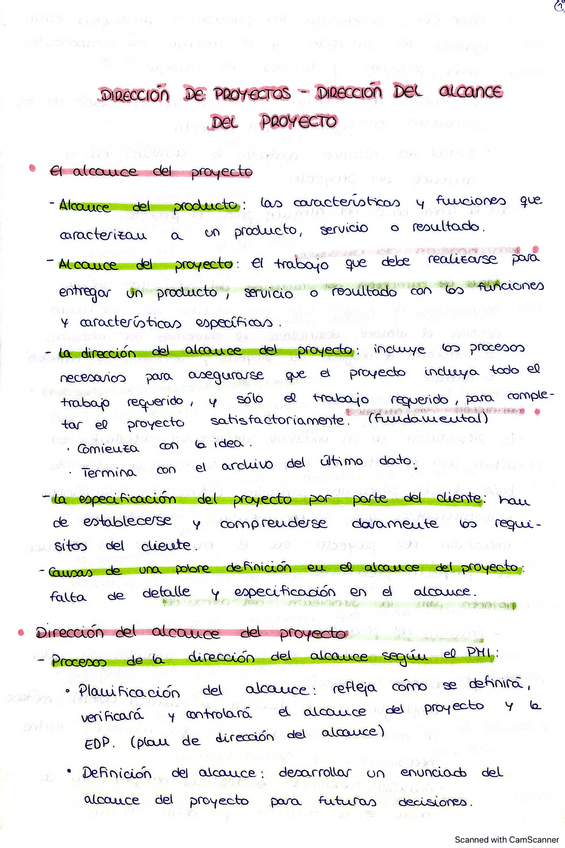 DIRECCIÓN DE PROYECTOS - DIRECCIÓN DEL alcance
DEL PROYECTO
• El alcance del proyecto
- Alcance del producto: las características y funciones que
caracterizan a un producto, servicio o resultado.
- Alcance del proyecto: El trabajo que debe realizarse para
entregar un producto, servicio o resultado con las funciones
y características específicas.
- La dirección del alcance del proyecto: incluye los procesos
necesarios para asegurarse que el proyecto incluya todo el
trabajo requerido, y sólo el trabajo requerido, para comple-
tar el proyecto satisfactoriamente. (fundamental)
· Comienza con la idea.
· Termina con el archivo del último dato.
- La especificación del proyecto por parte del cliente: han
de establecerse y comprenderse claramente los requi-
sitos del cliente.
- Causas de una pobre definición en el alcance del proyecto:
falta de detalle y especificación en el alcance.
• Dirección del alcance del proyecto
- Procesos de la dirección del alcance según el PMI:
• Planificación del alcance: refleja cómo se definirá,
verificará y controlará el alcance del proyecto y la
EDP. (plan de dirección del alcance)
• Definición del alcance: desarrollar un enunciado del
alcance del proyecto para futuras decisiones.
Scanned with CamScanner